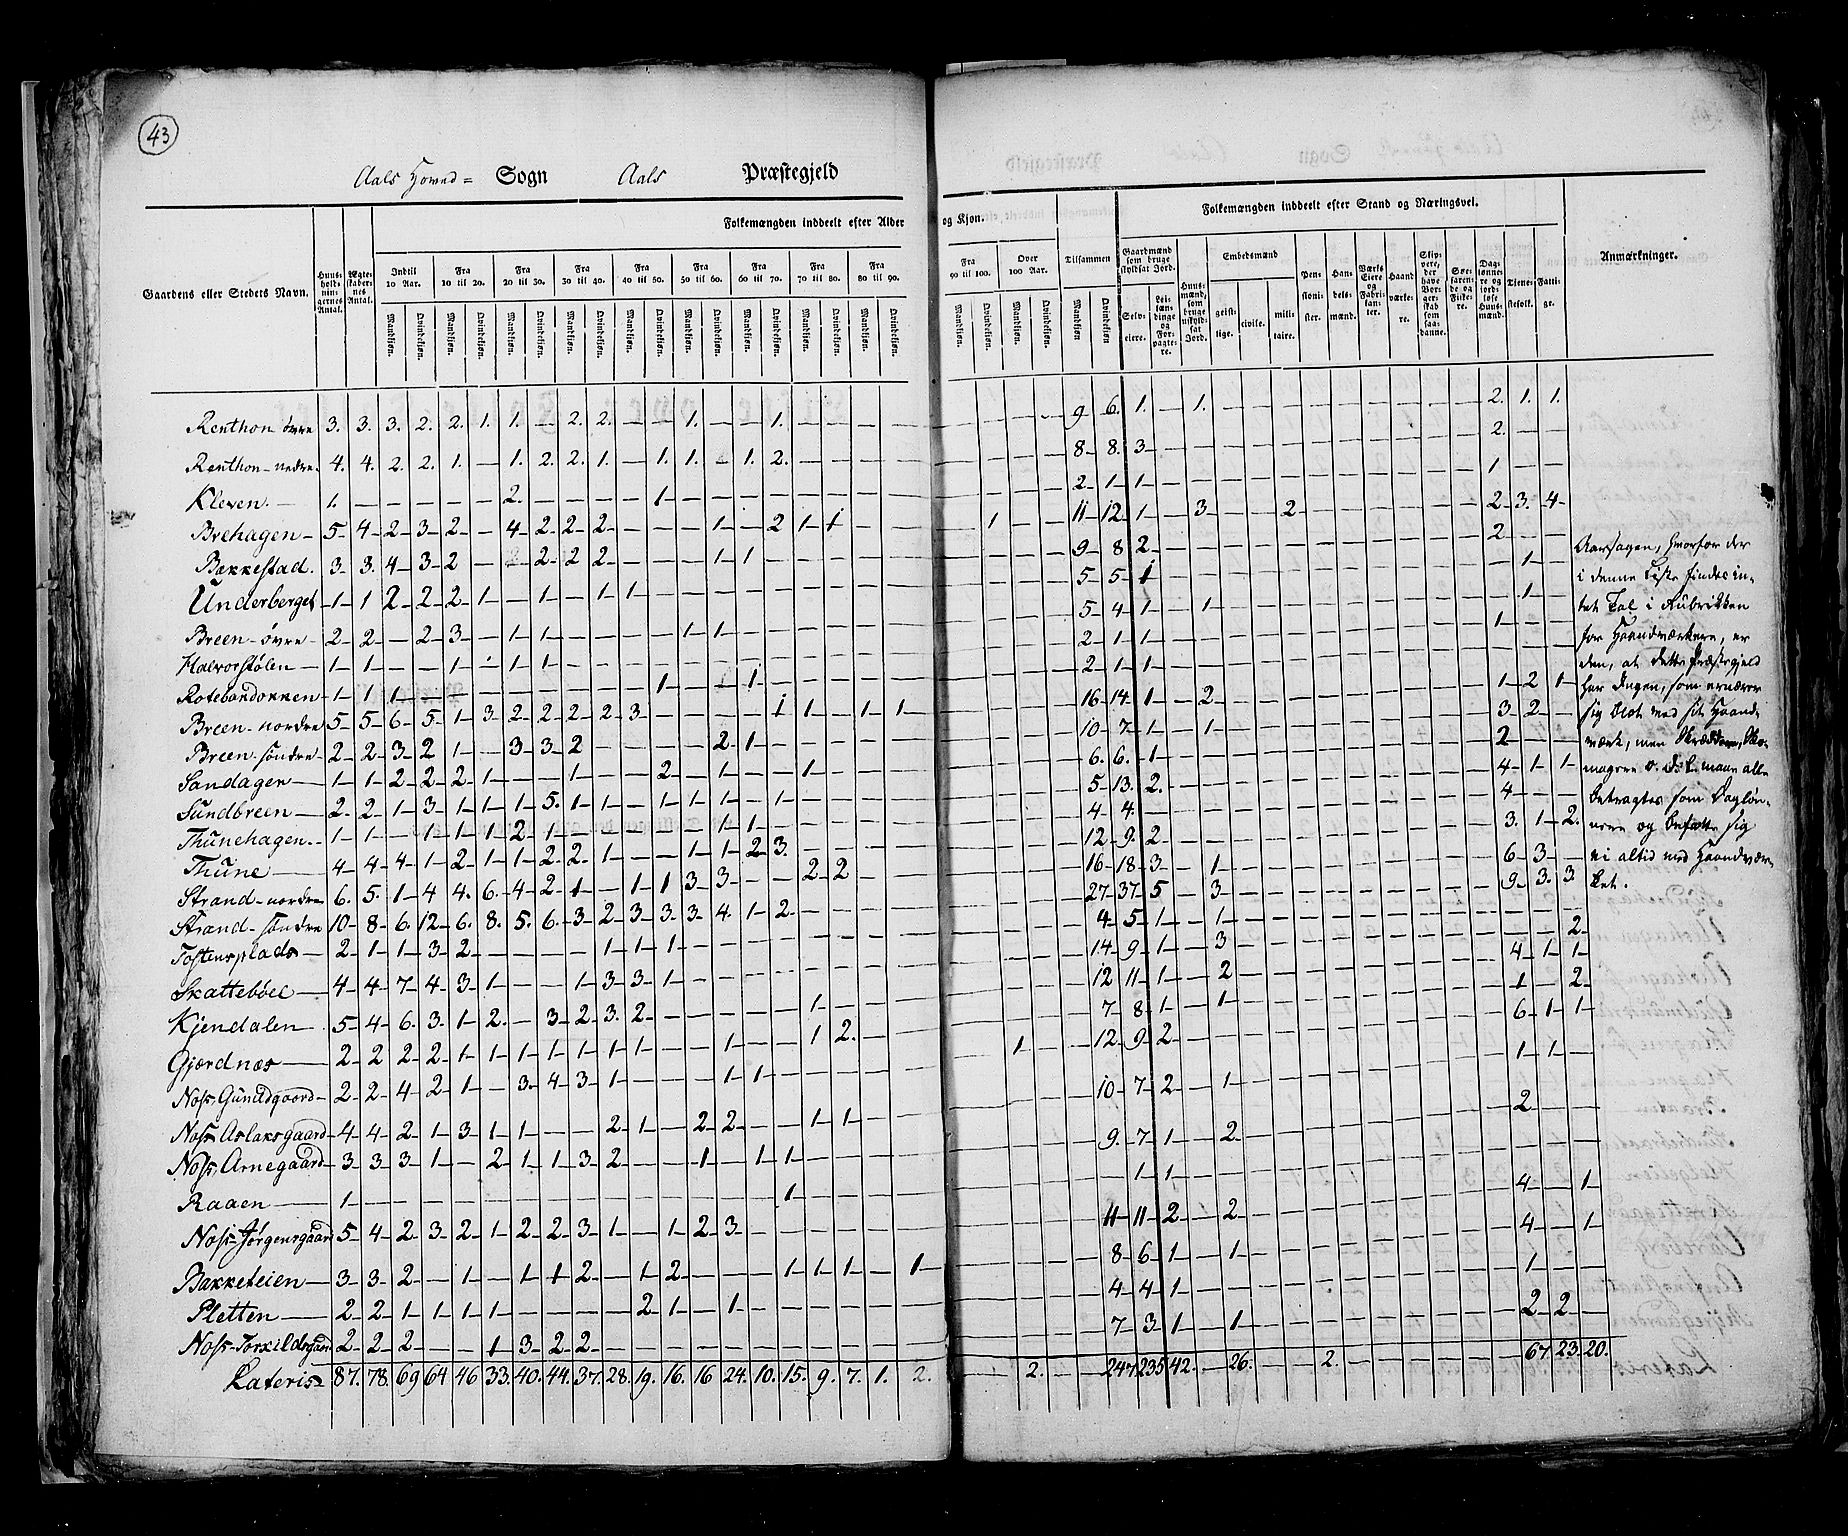 43
Aals Hoved= Sogn Aals Præstegjeld
Folkemængden inddeelt efter Alder og Kjøn.
Folkemængden inddeelt efter Stand og Næringsvei.
Gaardens eller Stedets Navn.
Huus-holdnin-gernes Antal.
Ægte-skaber-nes Antal.
Indtil 10 Aar.
Fra 10 til 20.
Fra 20 til 30.
Fra 30 til 40.
Fra 40 til 50.
Fra 50 til 60.
Fra 60 til 70.
Fra 70 til 80.
Fra 80 til 90.
Fra 90 til 100.
Over 100 Aar.
Tilsammen
Mandkjøn. Qvindekjøn.
Gaardmænd som bruge skyldsat Jord.
Selv-eiere.
Leilændinge og Forpagtere.
Huusmænd, som bruge uskyldsat Jord.
Embedsmænd
geistlige. civile. militaire.
Pensionister.
Handelsmænd.
Værks Eiere og Fabrikanter.
Haandværkere.
Skippere, der have Borgerskab som saadanne.
Søefarende og Fiskere.
Daglønnere og jordløse Huusmænd.
Tjenestefolk.
Fattige.
Anmærkninger.
Renthon øvre 3. 3. 3. 2. 2. 1. 1. — 2. 2. — — 1. — — 1. 9 6. 1. — 1. 2. 1. 1.
Renthon nedre 4. 4. 2. 2. 1. — 1. 2. 2. 1. — 1. 1. — 1. 2. 8 8. 3 2.
Kleven 1. 2. 1 2 1 1 1
Brehagen 5 4 2 3 2 — 4 2 2 2 — — — 1 — 2 1 1 1 11 12 1 — 3 2 2 3 4
Bækkestad 3 3 4 3 2 — 2 2 2 2 — — — 1 1 9 8 2 2
Underberget 1 1 2 2 2 1 — 1 — 1 1 5 5 1 1
Breen øvre 2 2 — 2 3 — 1 1 — — — — 1 1 5 4 1 — 1 1
Halvorstølen 1 1 — — 1 — 1 1 2 1 1 1
Rotebardokken 1 1 1 1 1 2 1 1
Breen nordre 5 5 6 5 1 3 2 2 2 2 3 — — — — 1 1 — 1 1 16 14 1 — 2 1 2 1
Breen søndre 2 2 3 2 1 — 3 3 2 — — — — 2 1 10 7 1 — 1 3 2
Sandagen 1 1 2 2 2 1 — — 1 — — 2 — 1 — — 1 6. 6. 1 2
Sundbreen 2 2 1 3 1 1 1 5. 1 1 — 1 1 1 — 1 5 13. 2. 4 1 1
Thunehagen 1 1 — 1 1 1 2 1 — — — — — 1 1 4 4 4
Thune 4 4 4 1 2 1 1 2 2 1 — — 1 1 2 3. 12 9. 2 3. 1 2.
Strand nordre 6. 5. 1 4 4. 6. 4 2 1 — 1 1 3 3 — — 2 2 16 18 3 — 1 6 3
Strand søndre 10 8 6. 12 6. 8. 5. 6. 3 2 3 3. 3 4. 1 2 27 37 5 — 3 9 3. 3
Tostensplads 2 1 1 3 2 — — — — 1 1 1 4 5 1 — 1 2
Skattebøel 4 4 7 4 3 1 — — 1 3 3 1 14 9 1 — 3 4 1 1
Kjendalen 5 4 6. 3 1 2. — 3 2 3. 2 1 12 11 1 — 2 1 — 2
Gjærdnæs 2 2 2 2 1 1 1 1 1 1 1 — — 1 — — 1 2. 7 8 1 — 1 6 1 1
Nos Gunildgaard 2 2 4 2 1 — 3. 4 3 1 — — — 1 1 1 12 9 2 1 1
Nos Aslaksgaard 4 4 2 1 3 1 1 — — 2 1 — 2 2 — — 1 1 10 7 2 — 1 2
Nos Arnegaard 3 3 3 1 — 2 1 1 3 2 — — 1 — 1 1 9. 7 1 — 2
Raaen 1 1 1 1
Nos Jørgensgaard 5 4 2 3 2 1 2 2 3 1 — 1 2 3 11 11 2 — 2 4 — 1
Bakketeien 3 3 2 — 1 — 1 1 2 — 1 2 — — — 1 1 1 — 1 8 6 1 — 1 4 — 1
Pletten 2 2 1 1 1 1 — — — — 2 1 — 1 4 4 1 1
Nos Torkildsgaard 2 2 2 — — 1 3 2 2 7 3 1 — 1 2 2
Lateris 87. 78. 69 64 46 33. 40. 44. 37. 28. 19. 16. 16 24. 10. 15. 9. 7. 1. 2. — 2. — — 247 235 42. — 26. 2. 67 23. 20.
Aarsagen, hvorfor der
i denne Liste findes in-
tet Tal i Rubrikken
for Haandværkere, er
den, at dette Præstegjeld
har Ingen, som ernærer
sig blot med sit Haand-
værk, men Skræddere, Sko-
magere o. d. l. maae alle
betragtes som Dagløn-
nere og befatte sig
ei altid med Haandvær-
ket.